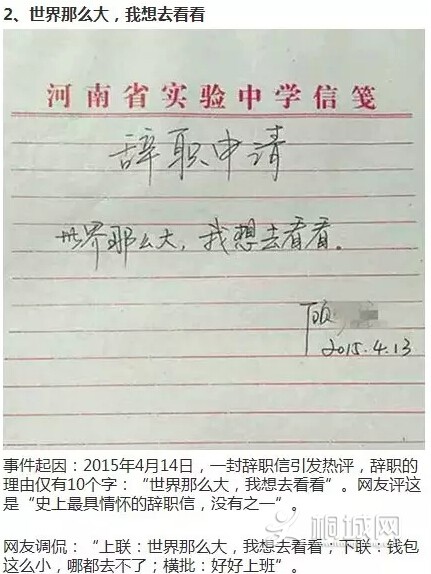 2、世界那么大，我想去看看
河南省实验中学信笺
辞职申请
世界那么大，我想去看看。
顾
2015.4.13
事件起因：2015年4月14日，一封辞职信引发热评，辞职的
理由仅有10个字：“世界那么大，我想去看看”。网友评这
是“史上最具情怀的辞职信，没有之一”。
网友调侃：“上联：世界那么大，我想去看看；下联：钱包
这么小，哪都去不了；横批：好好上班”。
桐城网